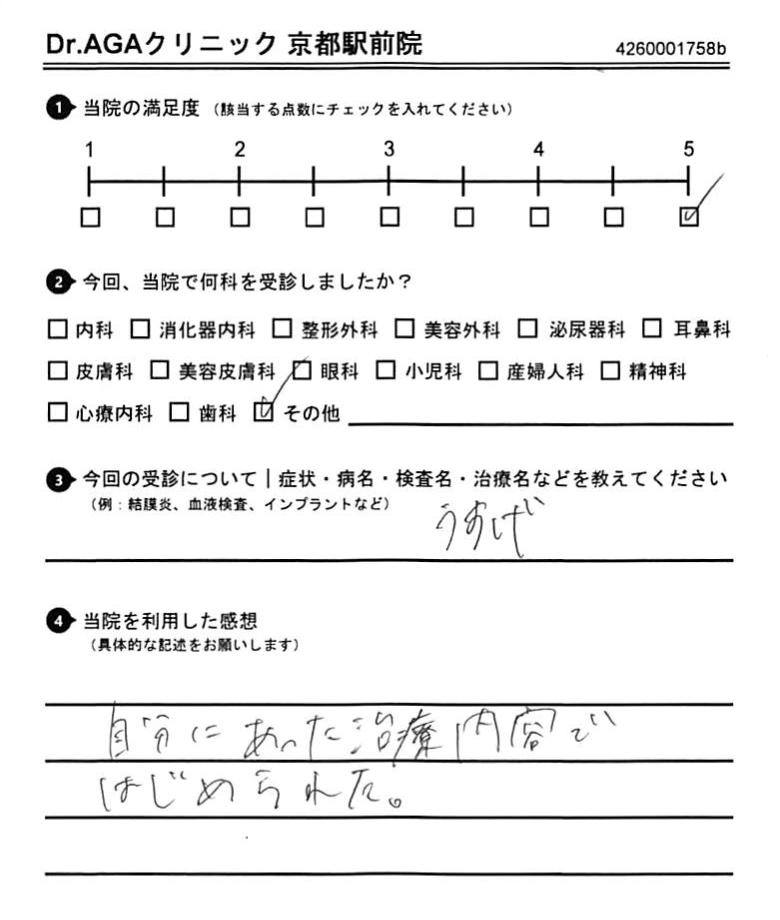 Dr.AGAクリニック 京都駅前院
4260001758b
1 当院の満足度 (該当する点数にチェックを入れてください)
1 2 3 4 5
2 今回、当院で何科を受診しましたか？
内科 消化器内科 整形外科 美容外科 泌尿器科 耳鼻科
皮膚科 美容皮膚科 眼科 小児科 産婦人科 精神科
心療内科 歯科 その他
3 今回の受診について｜症状・病名・検査名・治療名などを教えてください
(例：結膜炎、血液検査、インプラントなど)
うすげ
4 当院を利用した感想
(具体的な記述をお願いします)
自分にあった治療内容で
はじめられた。